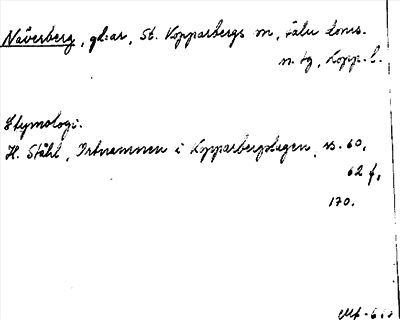 Näverberg, gdar, St. Kopparbergs sn, Falu doms.
n. tg, Kopp. l.
Etymologi:
H. Ståhl, Ortnamnen i Kopparbergslagen, ss. 60,
62 f,
170.